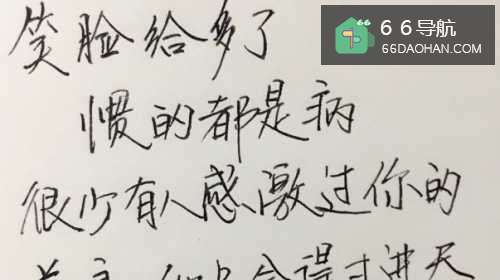 笑脸给多了
惯的都是病
很少有人感激过你的
66导航
66DAOHAN.COM